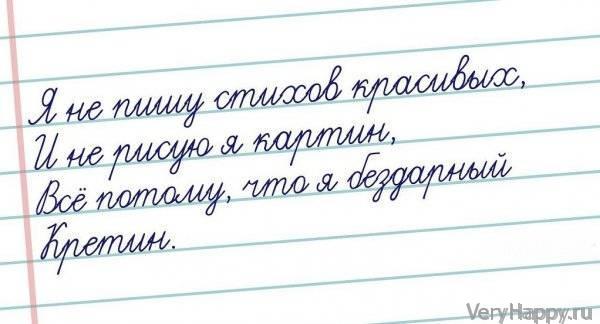 Я не пишу стихов красивых,
И не рисую я картин,
Всё потому, что я бездарный
Кретин.
VeryHappy.ru